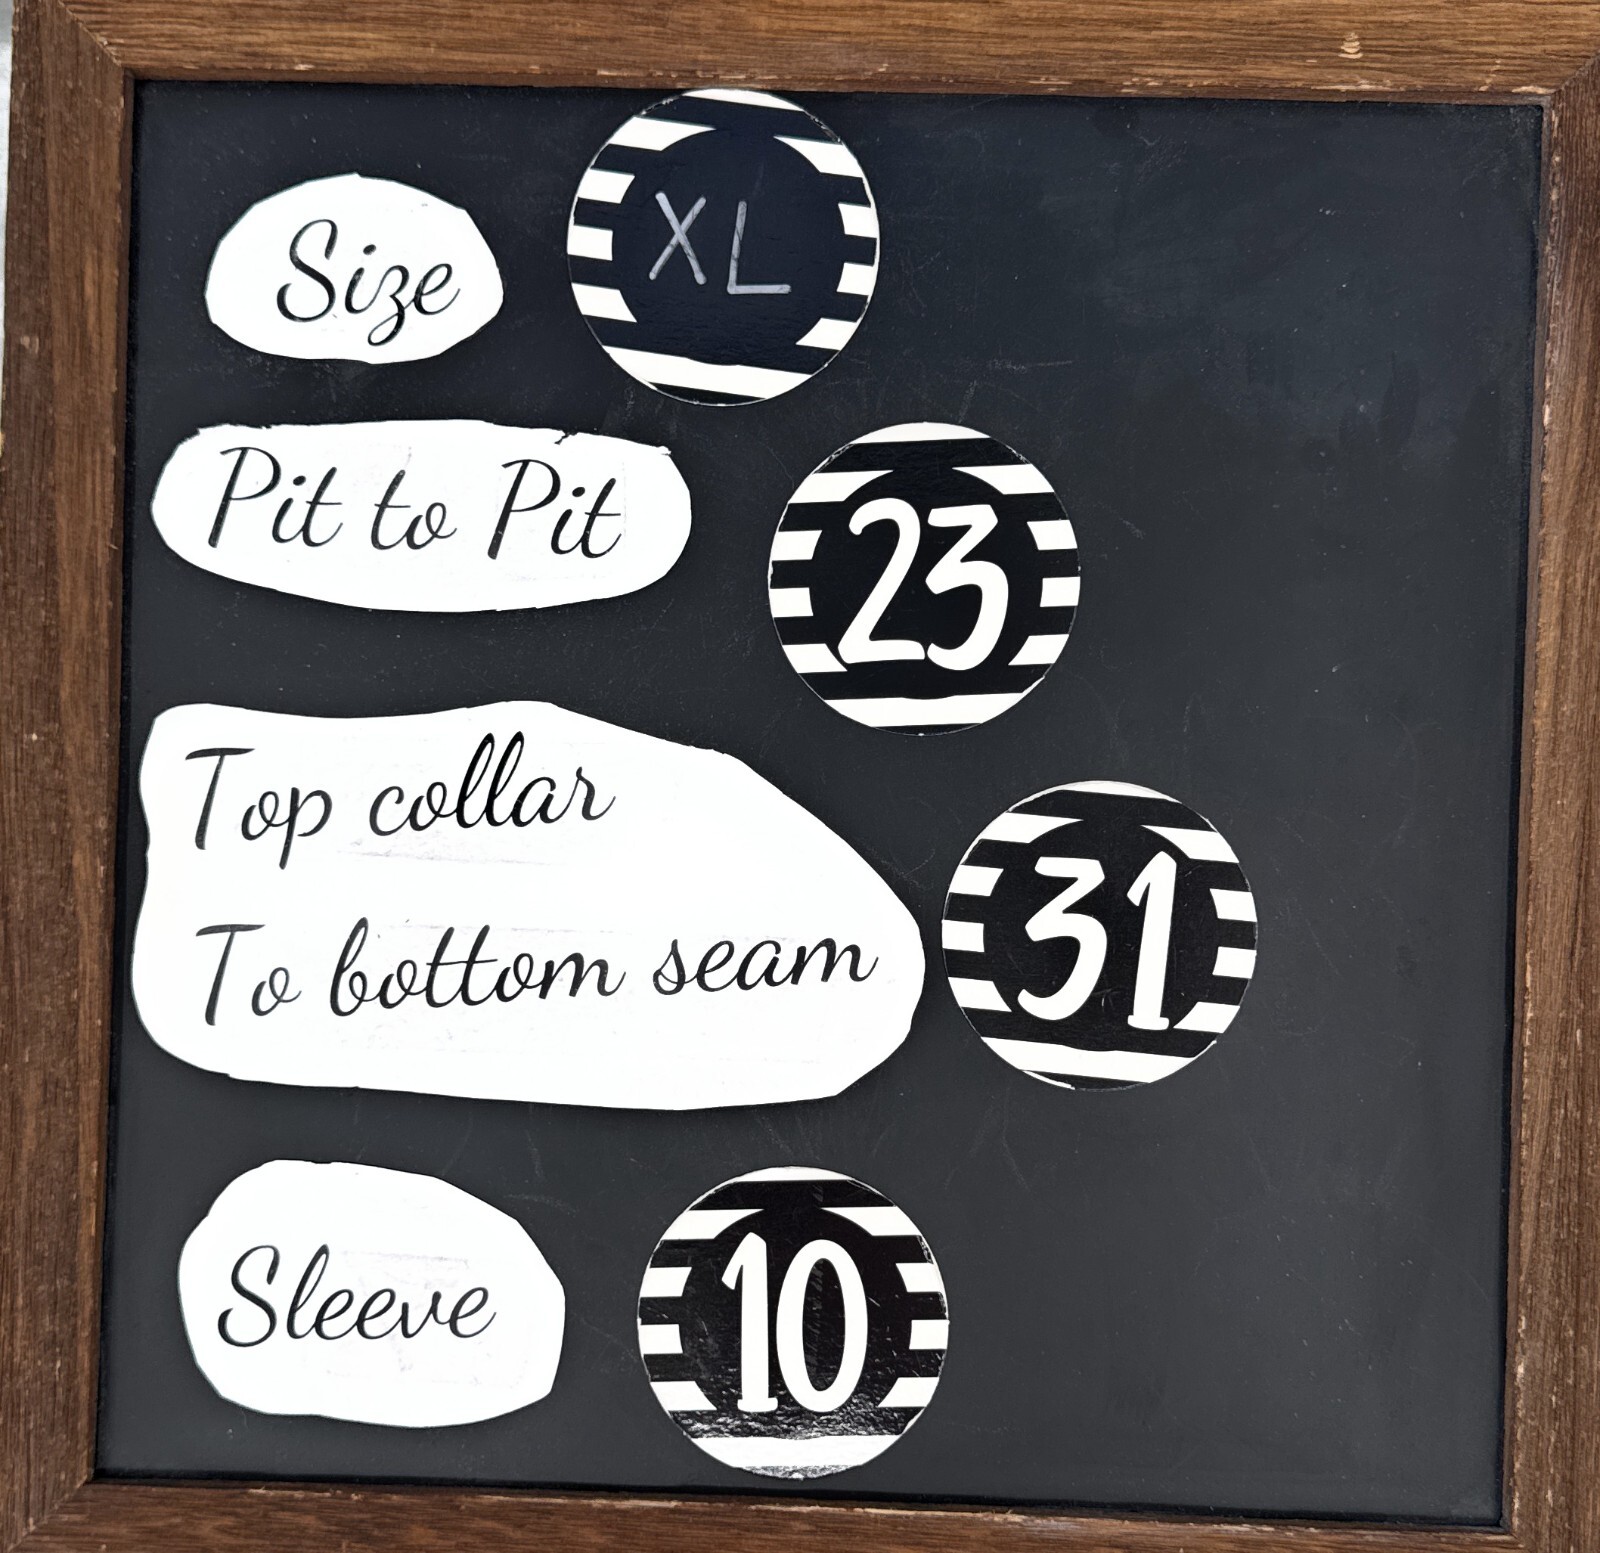 Size XL
Pit to Pit 23
Top collar
To bottom seam 31
Sleeve 10